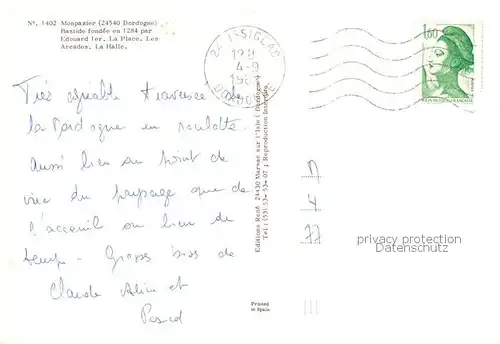 N°. 1402 Monpazier (24540 Dordogne)
Bastide fondée en 1284 par
Edouard 1er. La Place, Les
Arcades. La Halle.
24 ISSIGEAC
19H
4-9
DORDOGNE
1,60
Très agréable traversée de
la Dordogne en roulotte
aussi bien au point de
vue du paysage que de
l'accueil ou bien du
temps - Grosses bises de
Claude Aline et
Editions René 24430 Marsac sur l'Isle (Dordogne)
Tél: (53).534-534-07 ; Reproduction Interdite.
privacy protection
Datenschutz
Printed
in Spain